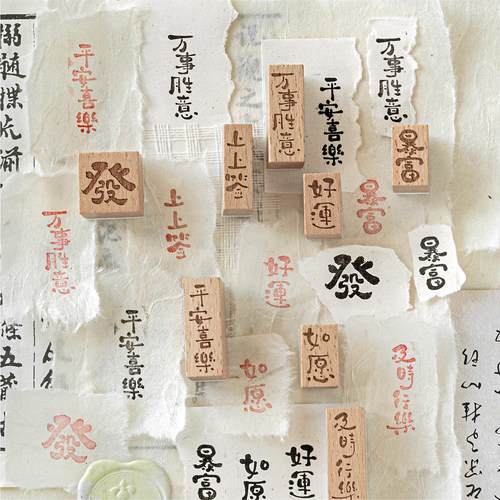 平安喜樂
万事胜意
万事胜意
平安喜樂
万事胜意
暴富
發
上上签
好運
上上签
暴富
万事胜意
好運
發
暴富
平安喜樂
平安喜樂
如愿
如愿
及時行樂
發
及時行樂
暴富
如愿
好運